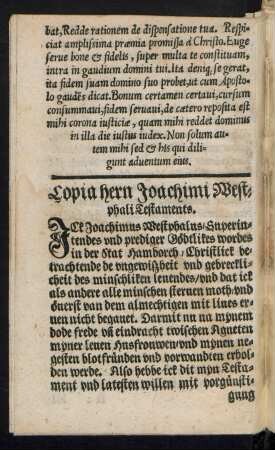 bat, Redde rationem de dispensatione tua. Respi-
ciat amplissima præmia promissa à Christo. Euge
serue bone & fidelis, super multa te constituam,
intra in gaudium domini tui. Ita deniq, se gerat,
ita fidem suam domino suo probet, ut cum Aposto-
lo gaudēs dicat. Bonum certamen certaui, cursum
consummaui, fidem seruaui, de cætero reposita est
mihi corona iusticiæ, quam mihi reddet dominus
in illa die iustus iudex. Non solum au-
tem mihi sed & his qui dili-
gunt aduentum eius.
Copia hern Joachimi West-
phali Testaments.
ICk Joachimus Westphalus, Superin-
tendes vnd prediger Gödtlikes wordes
in der Stat Hamborch, Christlick be-
trachtende de vngewißheit vnd gebreckli-
cheit des minschliken leuendes, vnd dat ick
als andere alle minschen steruen moth, vnd
öuerst van dem almechtigen mit liues er-
uen nicht begauet. Darmit nu na mynem
dode frede vñ eindracht twischen Agneten
myner leuen Husfrouwen, vnd mynen ne-
gesten blotfründen vnd vorwandten erhol-
den werde. Also hebbe ick dit myn Testa-
ment vnd latesten willen mit vorgünsti-
gung